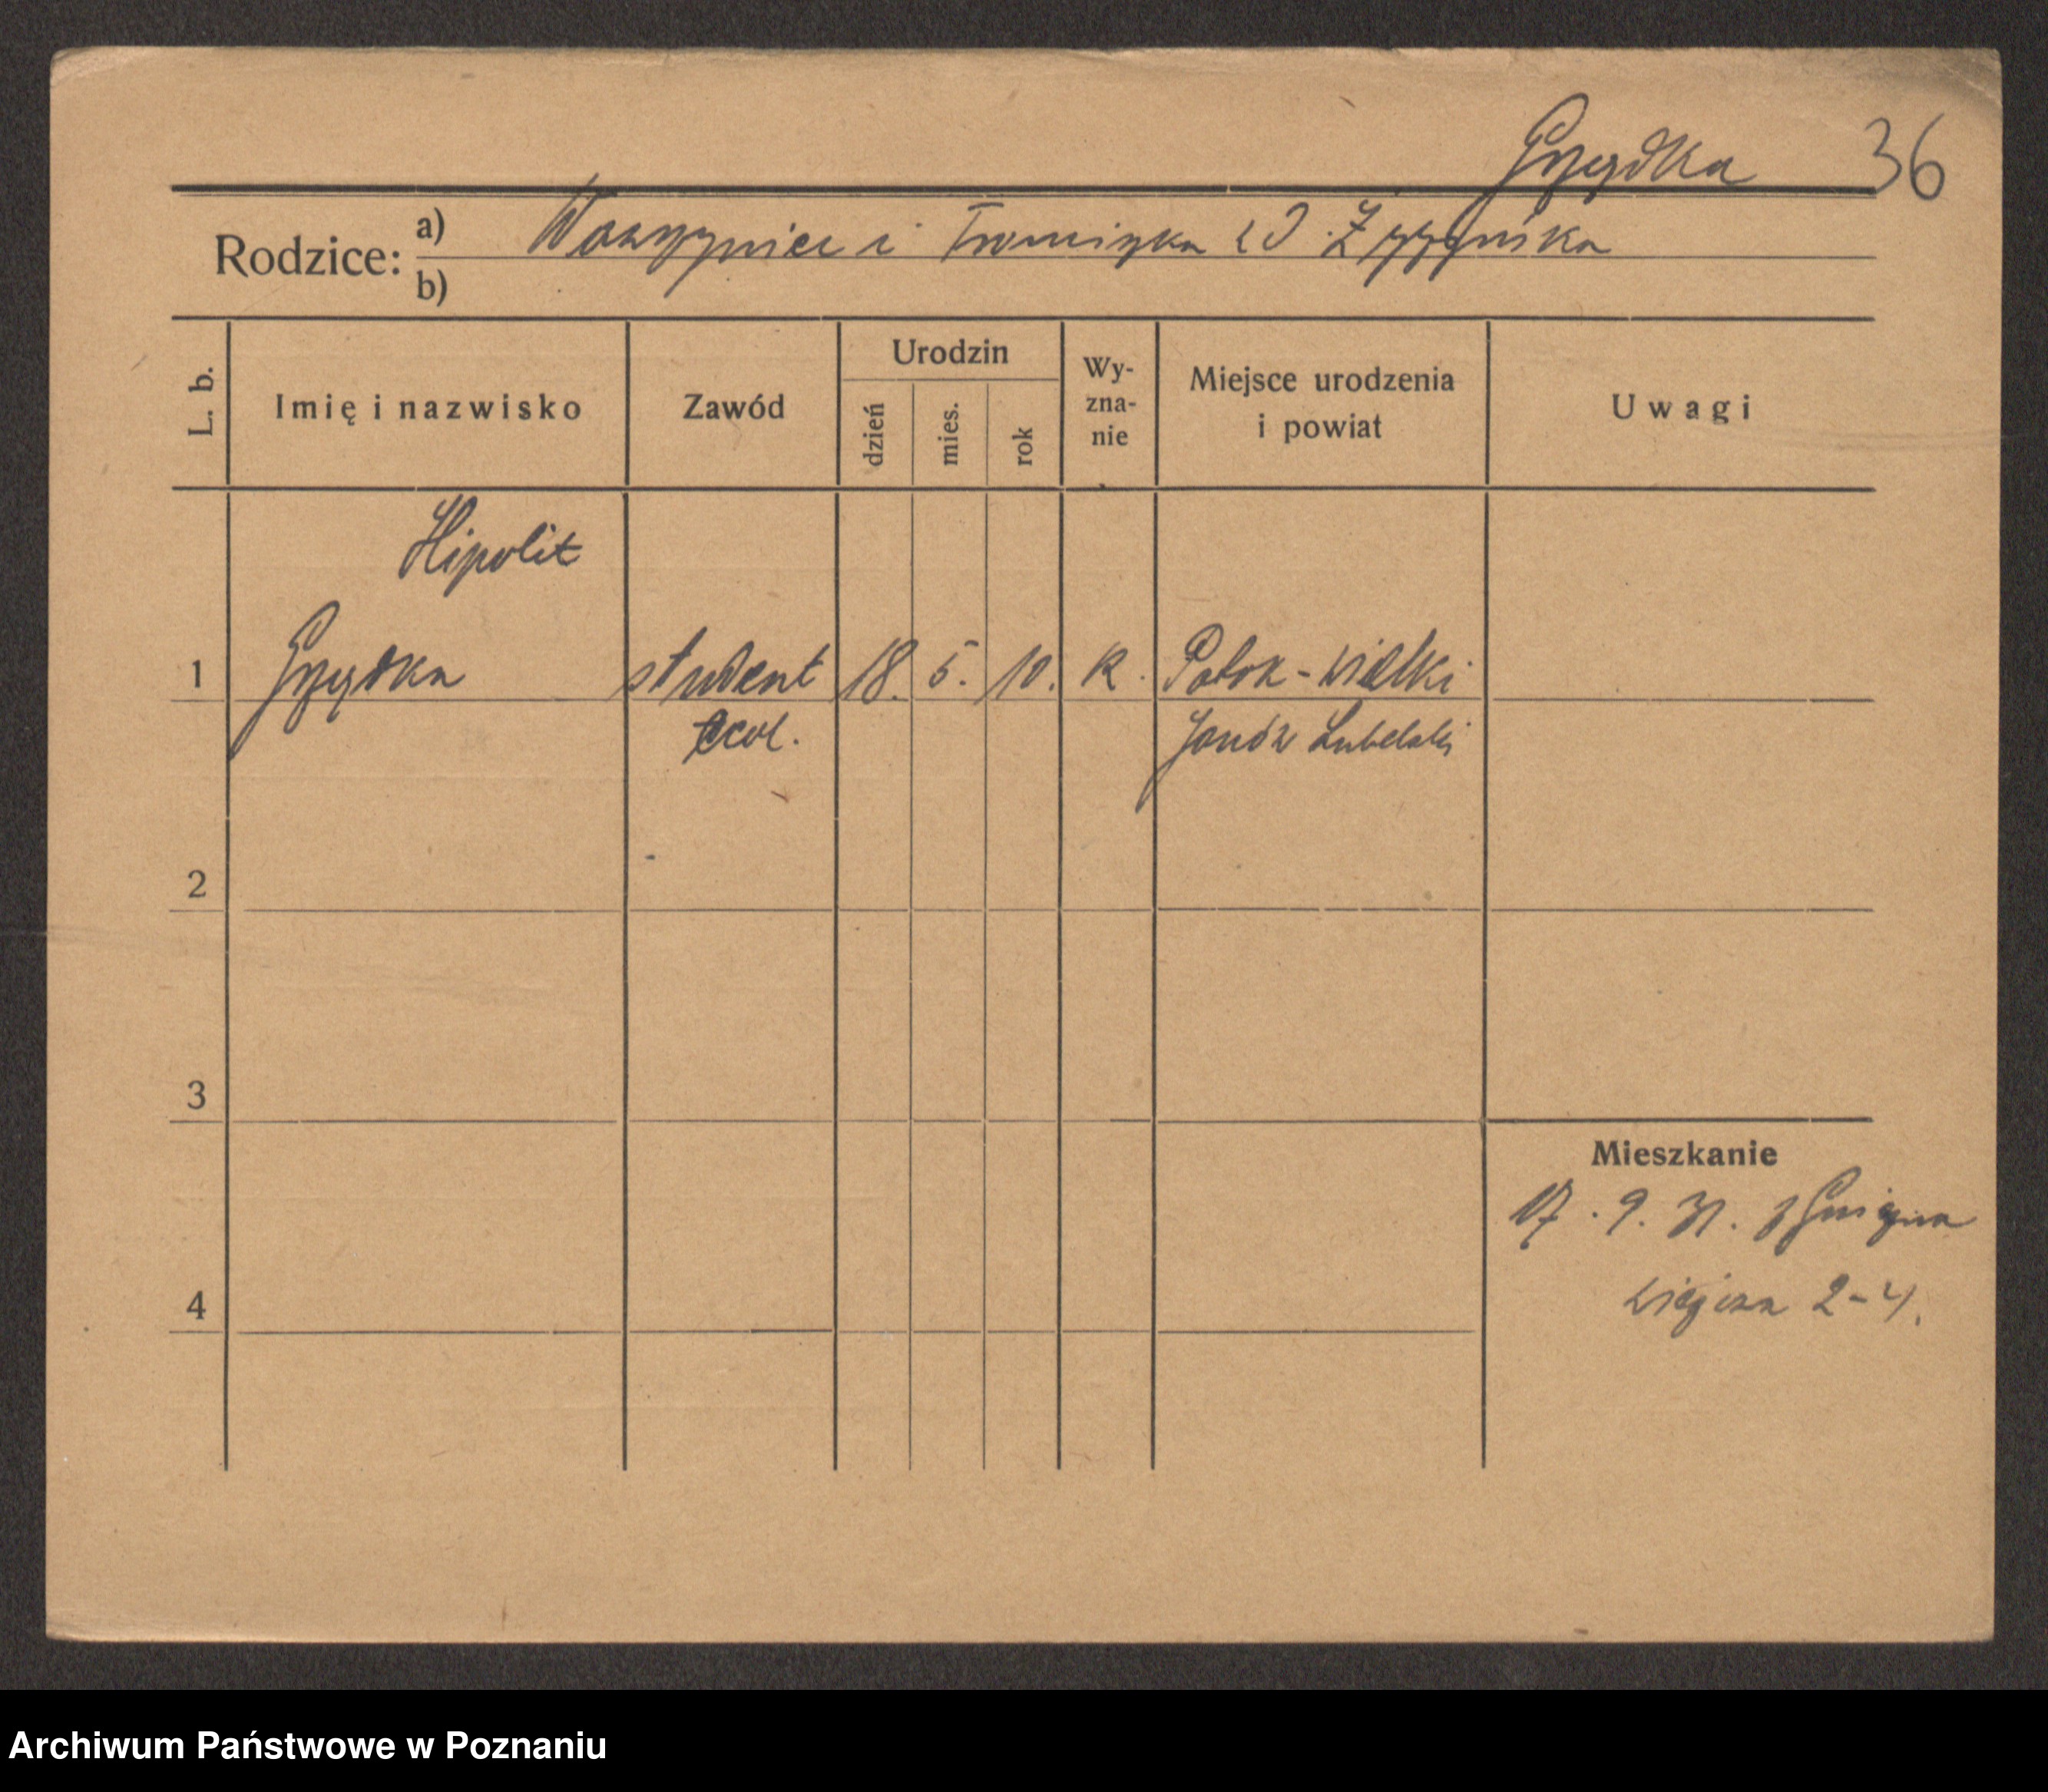 Grzydka 36
Rodzice: a) Wawrzyniec i Franciszka z d. Żyzyńska
b)
L. b.
Imię i nazwisko
Zawód
Urodzin
dzień
mies.
rok
Wy-
zna-
nie
Miejsce urodzenia
i powiat
Uwagi
Hipolit
1 Grzydka student 18. 5. 10. R. Potok-Wielki
Janów Lubelski
2
3
Mieszkanie
17. 9. 31. z Gniezna
4
2-4.
Archiwum Państwowe w Poznaniu